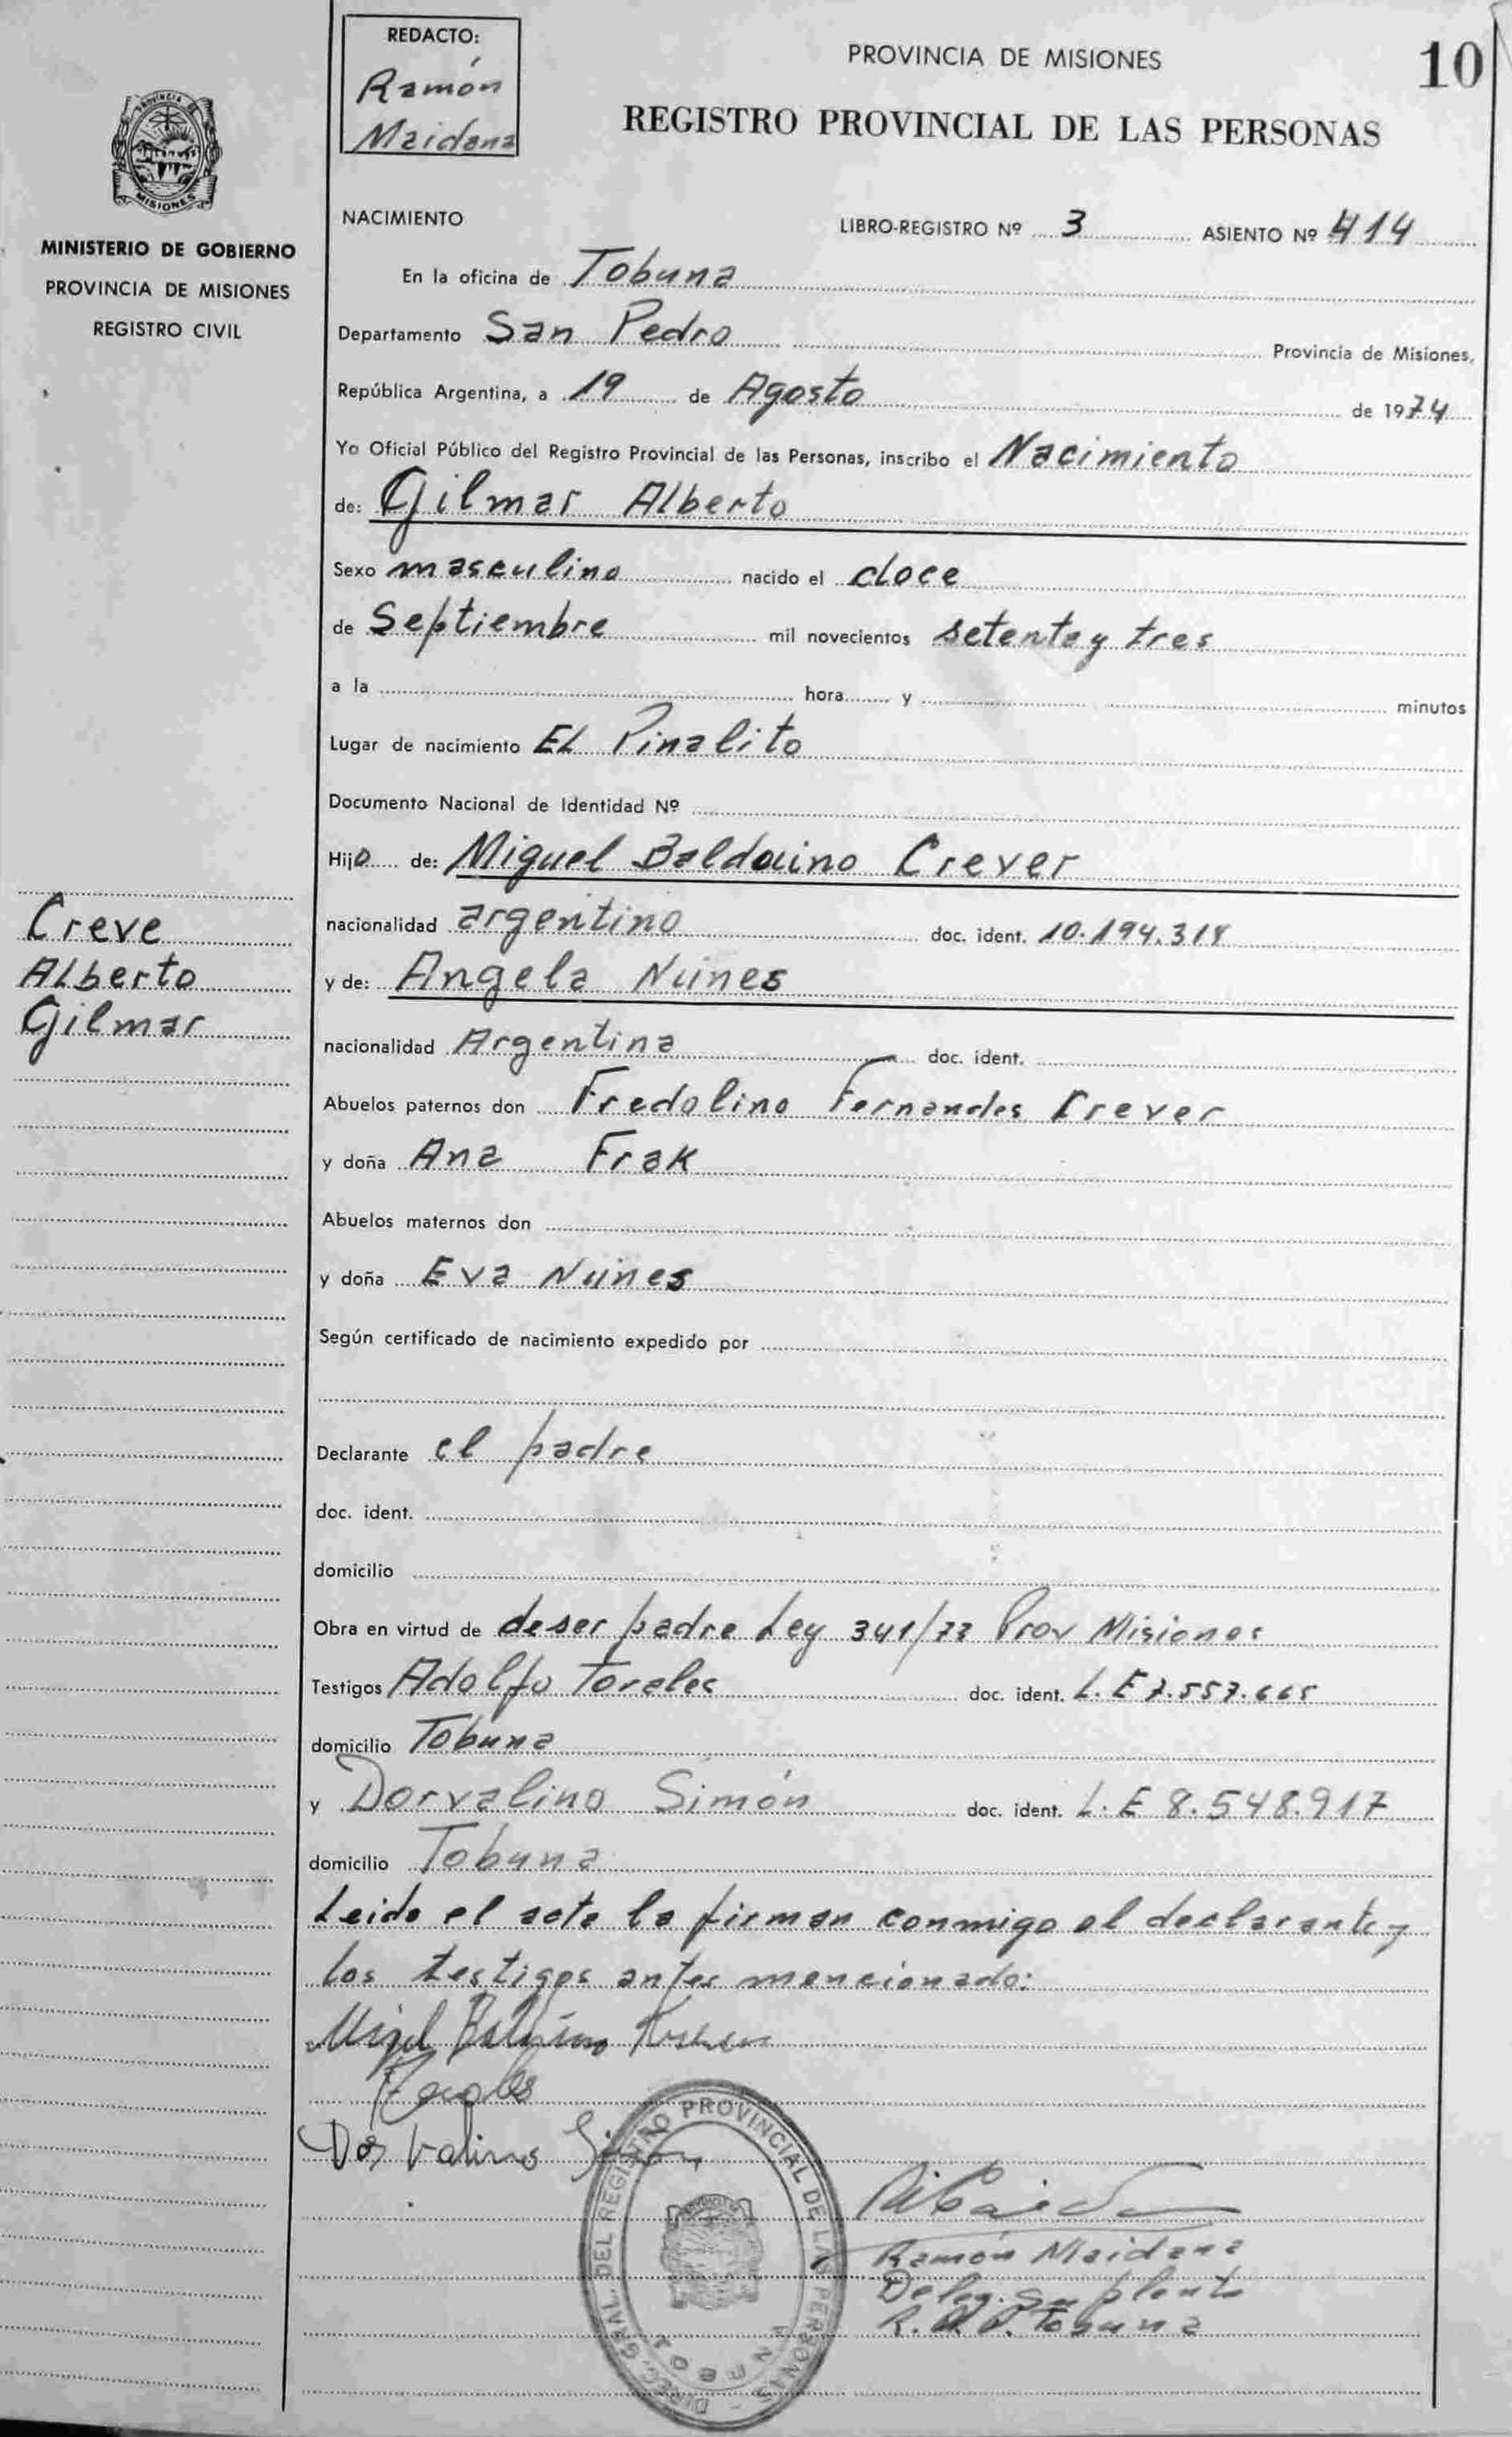 REDACTO:
Ramón
Maidana
PROVINCIA DE MISIONES
10
REGISTRO PROVINCIAL DE LAS PERSONAS
PROVINCIA DE
MISIONES
MINISTERIO DE GOBIERNO
PROVINCIA DE MISIONES
REGISTRO CIVIL
NACIMIENTO
LIBRO-REGISTRO Nº 3 ASIENTO Nº 414
En la oficina de Tobuna
Departamento San Pedro Provincia de Misiones,
República Argentina, a 19 de Agosto de 1974
Yo Oficial Público del Registro Provincial de las Personas, inscribo el Nacimiento
de: Gilmar Alberto
Sexo masculino nacido el doce
de Septiembre mil novecientos setenta y tres
a la hora y minutos
Lugar de nacimiento EL Pinalito
Documento Nacional de Identidad Nº
Hijo de: Miguel Baldoino Crever
Creve
Alberto
Gilmar
nacionalidad argentino doc. ident. 10.194.318
y de: Angela Nunes
nacionalidad Argentina doc. ident.
Abuelos paternos don Fredolino Fernandes Crever
y doña Ana Frak
Abuelos maternos don
y doña Eva Nunes
Según certificado de nacimiento expedido por
Declarante el padre
doc. ident.
domicilio
Obra en virtud de deser padre Ley 341/73 Prov Misiones
Testigos Adolfo Toreles doc. ident. L. E 7.557.665
domicilio Tobuna
y Dorvalino Simón doc. ident. L. E 8.548.917
domicilio Tobuna
Leido el acta la firman conmigo el declarante y
los testigos antes mencionado:
Dorvalino
Ramón Maidana
Deleg. Suplente
R. P. Tobuna
DIREC. GRAL. DEL REGISTRO PROVINCIAL DE LAS PERSONAS
TOBUNA